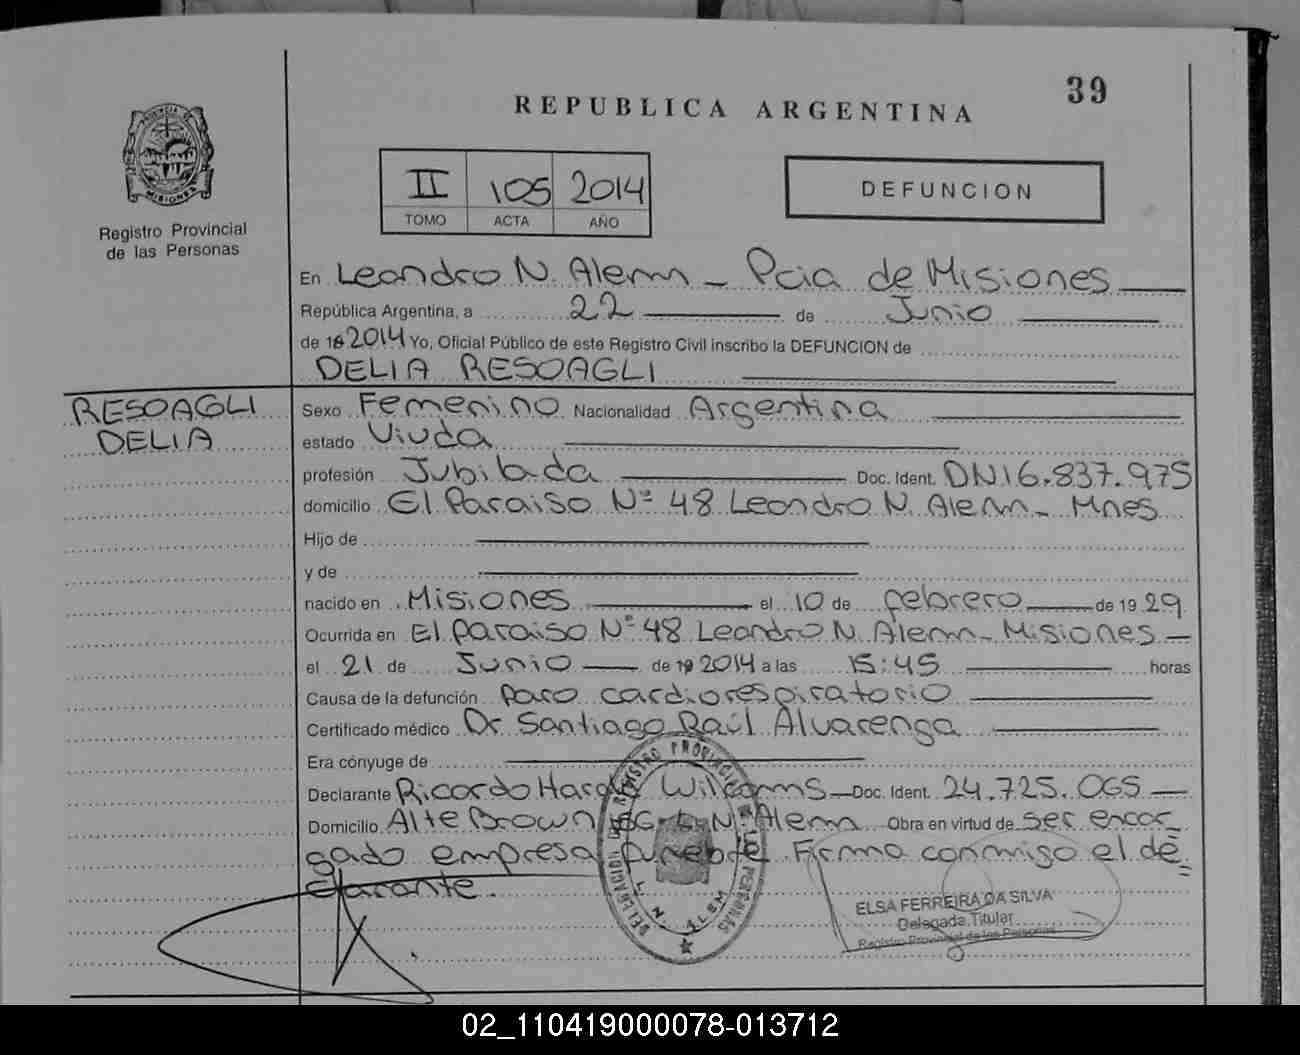 39
REPUBLICA ARGENTINA
PROVINCIA DE
MISIONES
Registro Provincial
de las Personas
II 105 2014
TOMO ACTA AÑO
DEFUNCION
En Leandro N. Alem - Pcia de Misiones
República Argentina, a 22 de Junio
de 19 2014 Yo, Oficial Público de este Registro Civil inscribo la DEFUNCION de
DELIA RESOAGLI
RESOAGLI
DELIA
Sexo Femenino Nacionalidad Argentina
estado Viuda
profesión Jubilada Doc. Ident. DNI 6.837.975
domicilio El Paraiso Nº 48 Leandro N. Alem - Mnes
Hijo de
y de
nacido en Misiones el 10 de febrero de 1929
Ocurrida en El Paraiso Nº 48 Leandro N. Alem - Misiones
el 21 de Junio de 19 2014 a las 15:45 horas
Causa de la defunción paro cardiorespiratorio
Certificado médico Dr Santiago Raúl Alvarenga
Era cónyuge de
Declarante Ricardo Doc. Ident. 24.725.065
Domicilio Alte Brown L. N. Alem Obra en virtud de ser encar
gado empresa funebre Firma conmigo el de
clarante.
REGISTRO PROVINCIAL DE LAS PERSONAS
L. N. ALEM
ELSA FERREIRA DA SILVA
Delegada Titular
Registro Provincial de las Personas
02_110419000078-013712